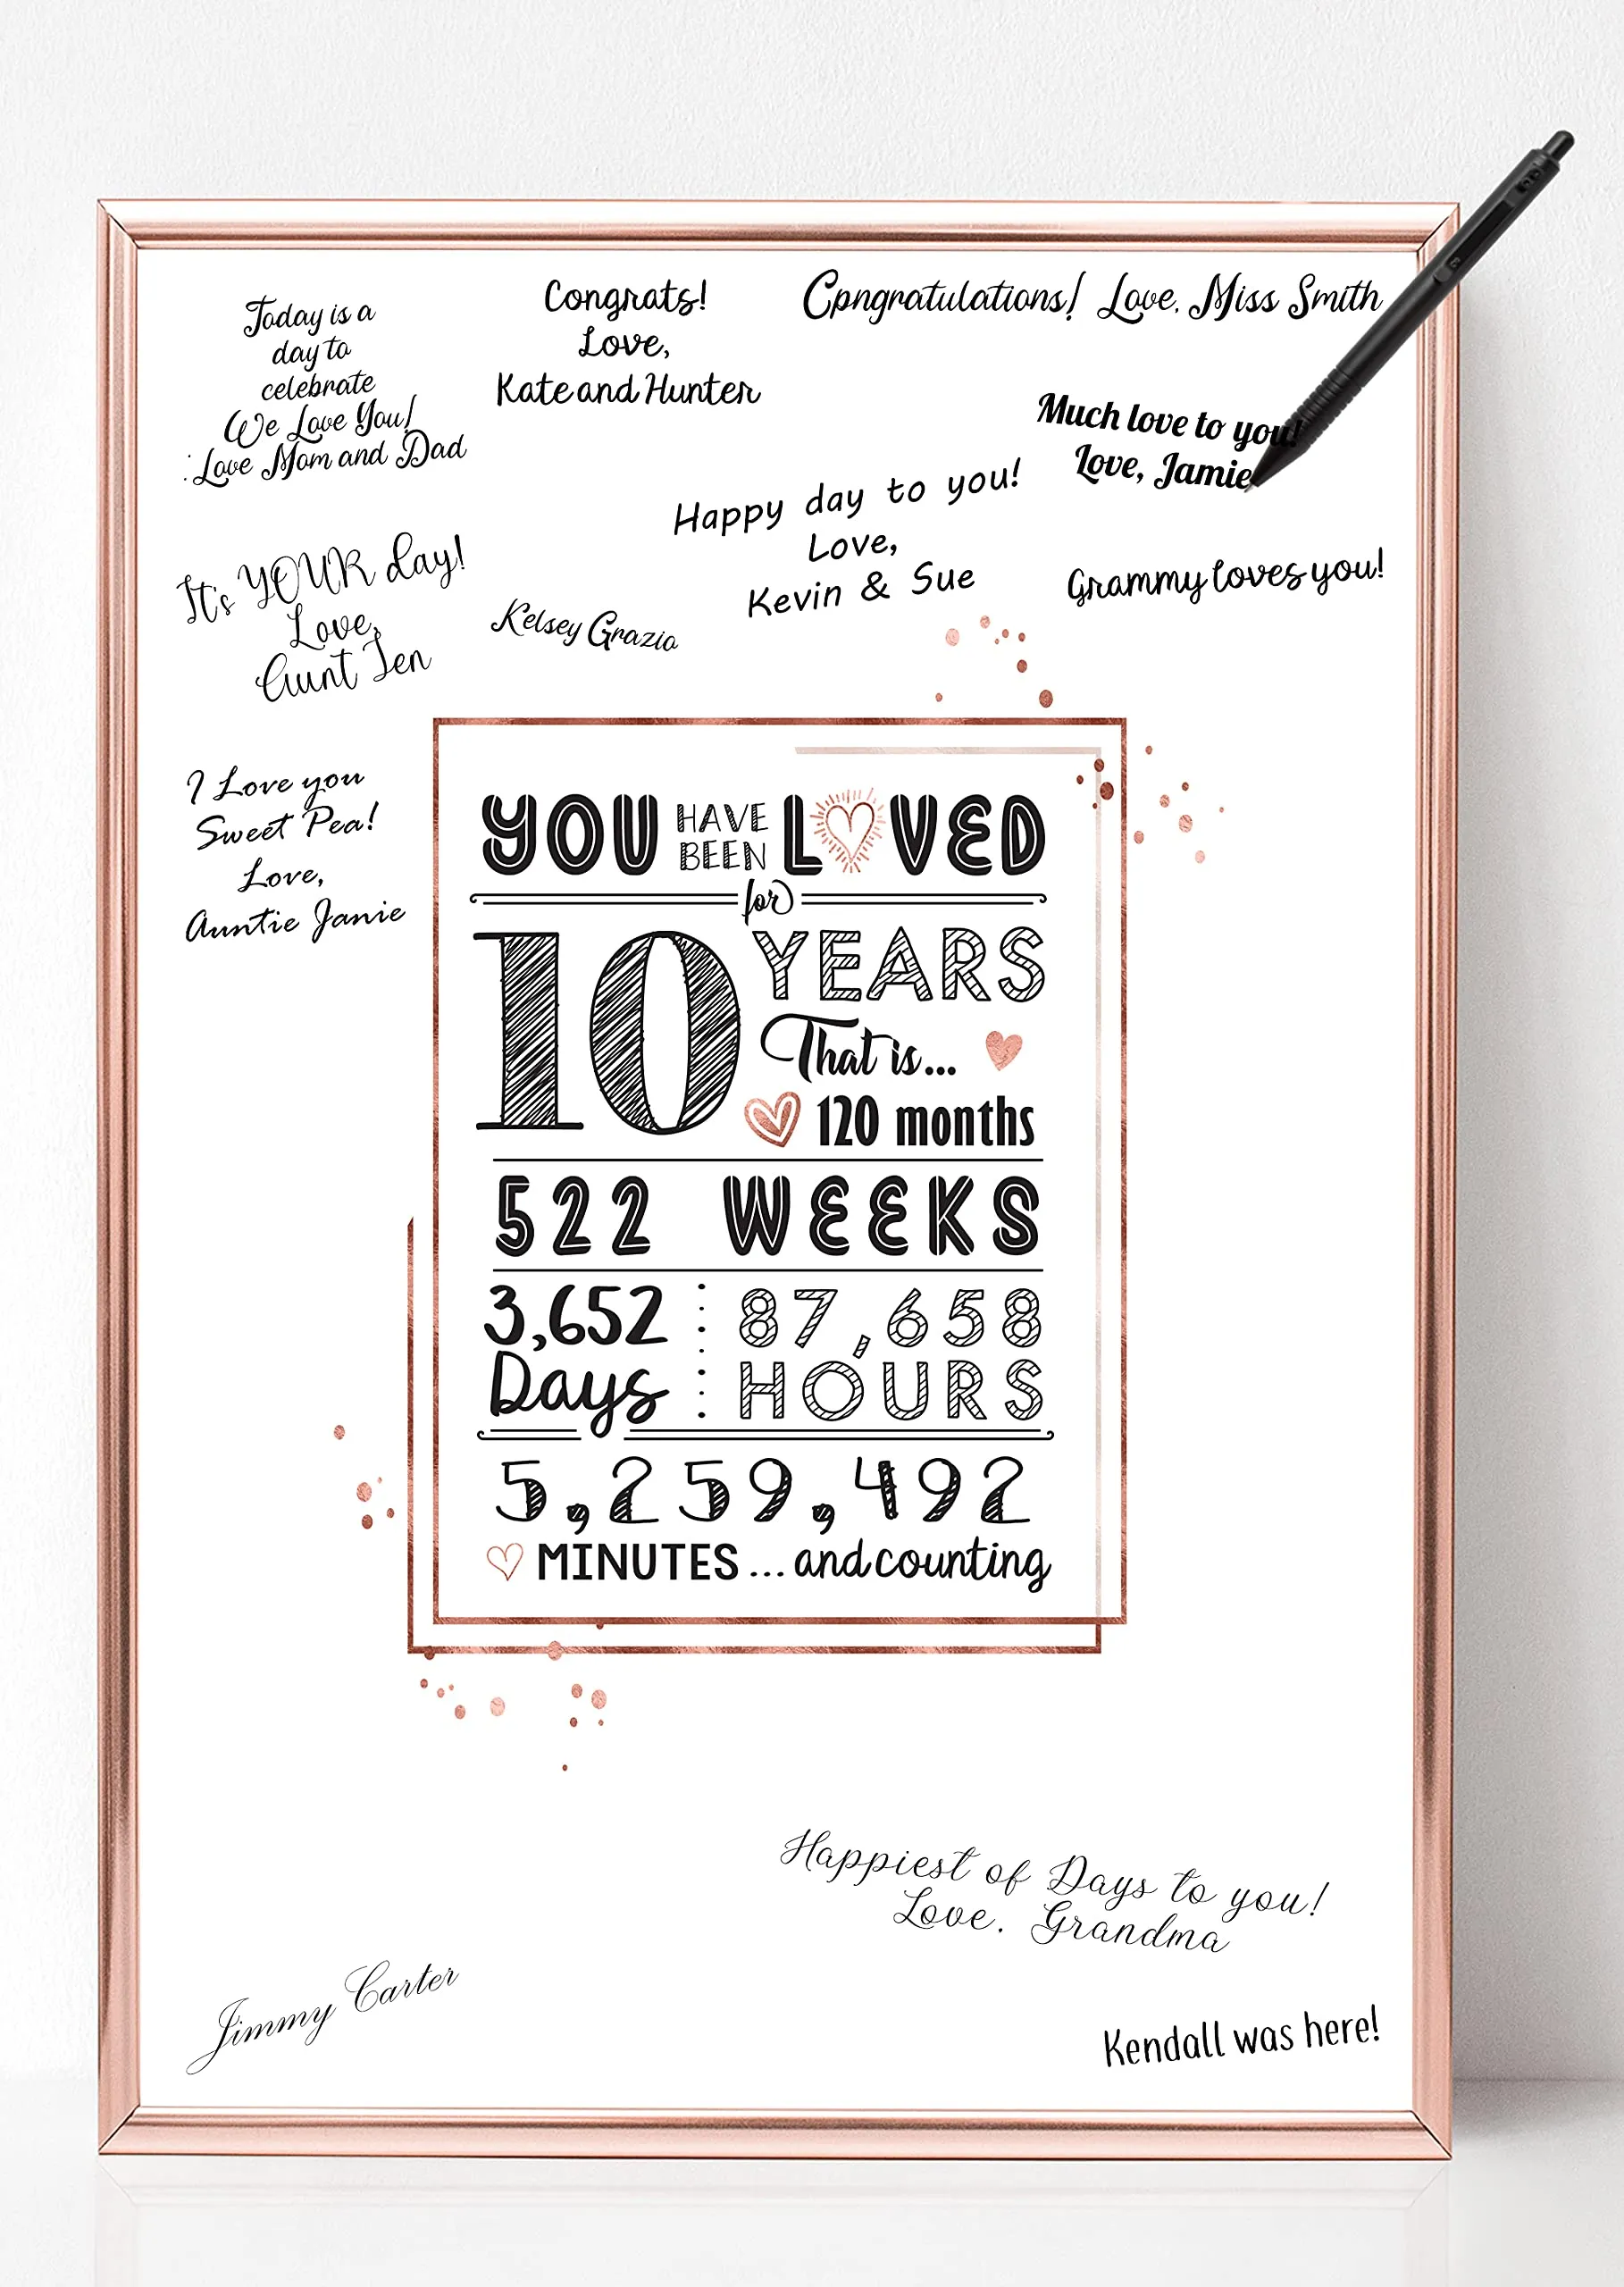 Today is a
day to
celebrate
We Love You!
Love Mom and Dad
Congrats!
Love,
Kate and Hunter
Cpngratulations! Love, Miss Smith
Much love to you!
Love, Jamie
Happy day to you!
Love,
Kevin & Sue
Grammy loves you!
It's YOUR day!
Love,
Aunt Jen
Kelsey Grazia
I Love you
Sweet Pea!
Love,
Auntie Janie
YOU HAVE BEEN LOVED
for
10 YEARS
That is...
120 months
522 WEEKS
3,652 Days
87,658 HOURS
5,259,492
MINUTES ... and counting
Happiest of Days to you!
Love. Grandma
Jimmy Carter
Kendall was here!